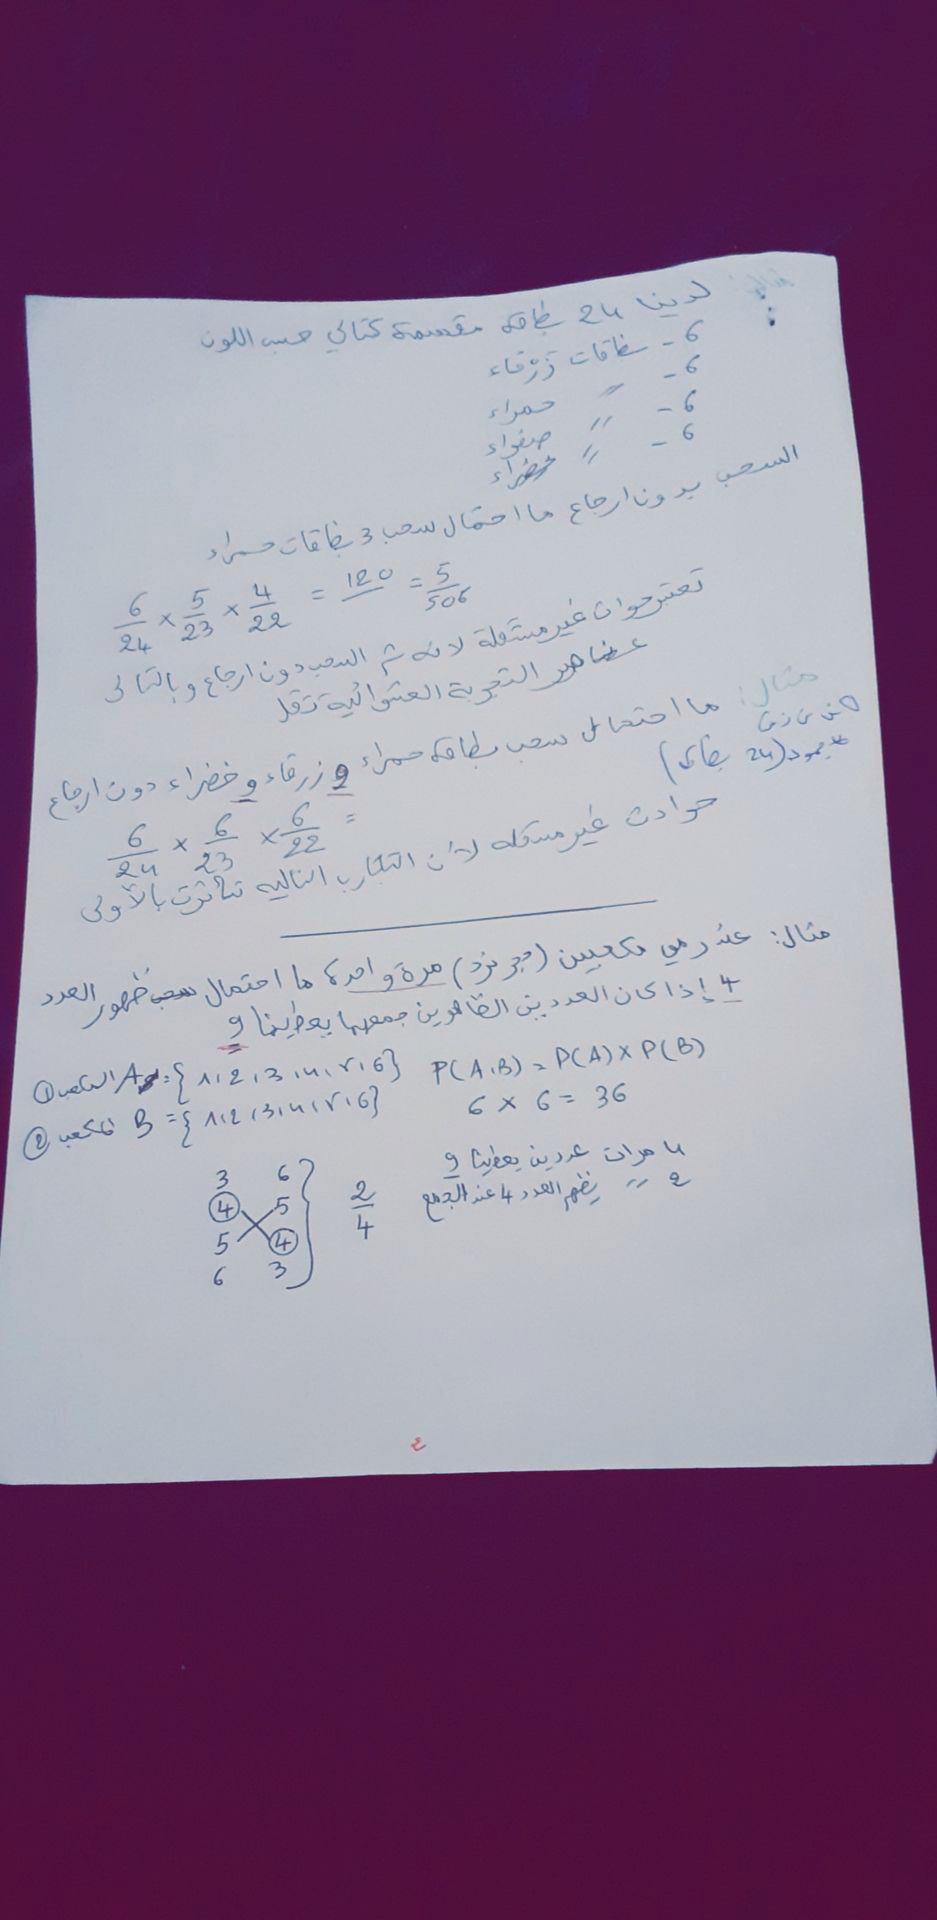 مثال:
لدينا 24 بطاقة مقسمة كتالي حسب اللون
6 - بطاقات زرقاء
6 - " حمراء
6 - " صفراء
6 - " خضراء
السحب بدون ارجاع ما احتمال سحب 3 بطاقات حمراء
6/24 × 5/23 × 4/22 = 120/ = 5/506
تعتبر حوادث غير مستقلة لانه تم السحب دون ارجاع وبالتالى
عناصر التجربة العشوائية تقل
مثال: ما احتمال سحب بطاقة حمراء و زرقاء و خضراء دون ارجاع
(24 بطاقة)
6/24 × 6/23 × 6/22 =
حوادث غير مستقله لأن التجارب التاليه تأثرت بالأولى
مثال: عند رمي مكعبين (حجر نرد) مرة واحدة ما احتمال ظهور العدد
4 إذا كان العددين الظاهرين جمعهما يعطينا 9
① المكعب A = {1,2,3,4,5,6} P(A,B) = P(A) × P(B)
② المكعب B = {1,2,3,4,5,6} 6 × 6 = 36
3 6
4 5
5 4
6 3
2/4
4 مرات عددين يعطينا 9
2 " يظهر العدد 4 عند الجمع
2